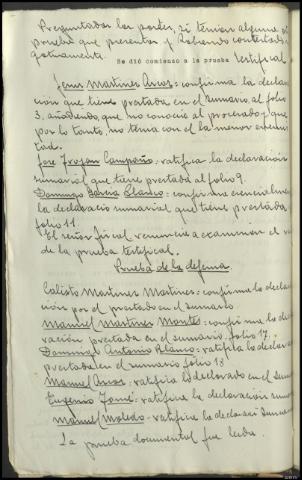 Preguntadas las partes, si tenían alguna
prueba que presentar y habiendo contestado
Se dió comienzo a la prueba testifical
Jesus Martinez Arcos = confirma la declara
cion que tiene prestada en el sumario, al folio
3, añadiendo que no conocia al procesado y que
por lo tanto, no tenia con el la menor enemis
tad.
Jose Trojan Campaño = ratifica la declaración
sumarial que tiene prestada al folio 9.
Domingo Garcia Blanco = confirma esencialmente
la declaració sumarial que tiene prestada
folio 11.
El señor fiscal renuncia a examinar el
de la prueba testifical.
Prueba de la defensa.
Calisto Martinez Martinez = confirma la declara
ción por el prestada en el sumario
Manuel Martinez Montes = confirma la decla
ración prestada en el sumario, folio 17.
Domingo Antonio = ratifica la declara
prestada en el sumario folio 18
Manuel Arcos = ratifica lo declarado en el suma
Eugenio = ratifica la declaración suma
Manuel Moledo = ratifica la declaraci sumar
La prueba documental fue leida.